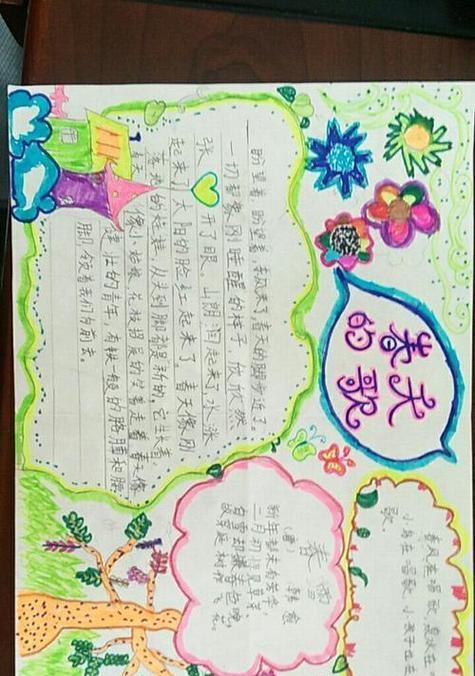 春天
的歌
盼望着,盼望着,春风来了,春天的脚步近了。
一切都象刚睡醒的样子,欣欣然
张开了眼。山朗润起来了,水涨
起来了,太阳的脸红起来了。春天像刚
落地的娃娃,从头到脚都是新的,它生长着。
春天像小姑娘,花枝招展的笑着走着。春天像
健壮的青年,有铁一般的胳膊和腰
脚,领着我们向前去。
春雪
(唐) 韩愈
新年都未有芳华,
二月初惊见草芽。
白雪却嫌春色晚,
故穿庭树作飞花。
春风在唱歌,泉水在
小鸟在唱歌,小孩子也在
歌。